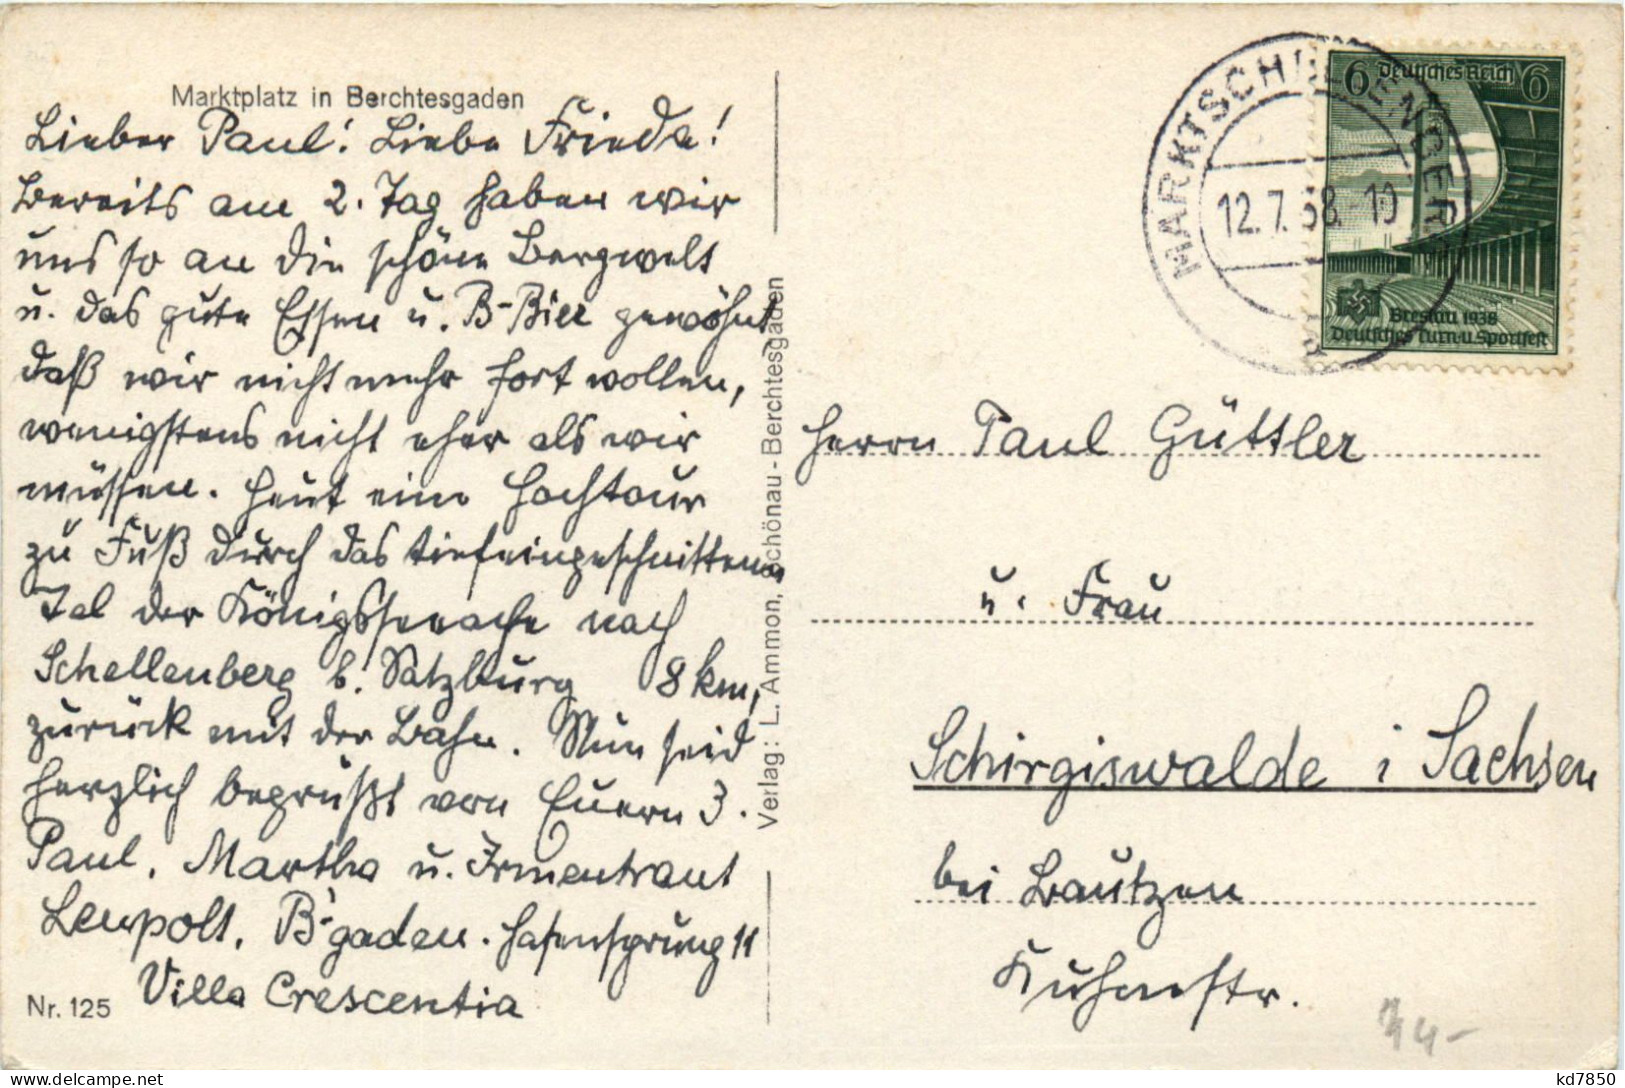 Marktplatz in Berchtesgaden
Lieber Paul! Liebe Frieda!
Bereits am 2. Tag haben wir
uns so an die schöne Bergwelt
u. das gute Essen u. B-Bier gewöhnt
daß wir nicht mehr fort wollen,
wenigstens nicht eher als wir
müssen. Heut eine Hochtour
zu Fuß durch das tiefeingeschnittene
Tal der Königsseeache nach
Schellenberg b. Salzburg 8 km,
zurück mit der Bahn. Nun seid
herzlich begrüßt von Euern 3.
Paul, Martha u. Irmentraut
Leupolt, B'gaden. Hasensprung 11
Villa Crescentia
Nr. 125
Verlag: L. Ammon, Schönau - Berchtesgaden
MARKTSCHELLENBERG
12.7.38.-10
6 Deutsches Reich 6
Breslau 1938
Deutsches Turn-u. Sportfest
Herrn Paul Güttler
u. Frau
Schirgiswalde i Sachsen
bei Bautzen
kd7850